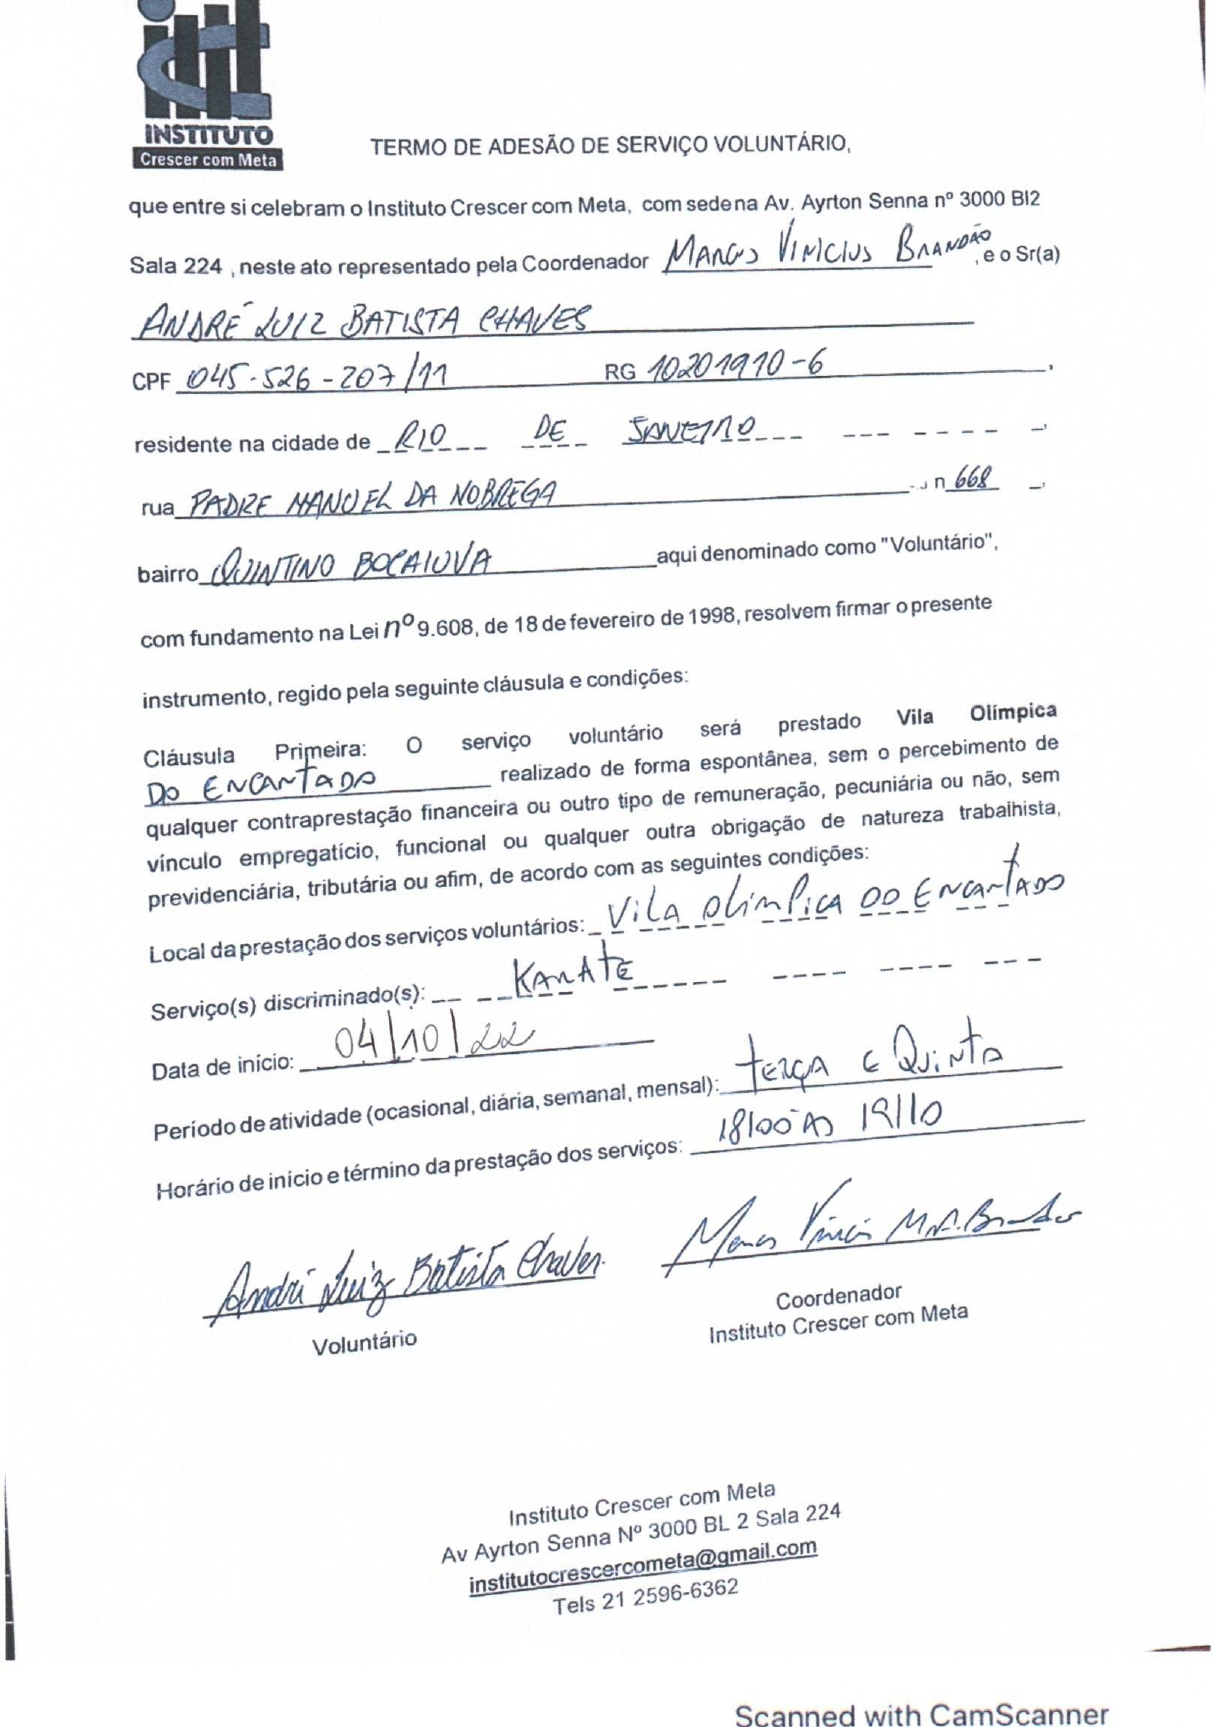 INSTITUTO
Crescer com Meta
TERMO DE ADESÃO DE SERVIÇO VOLUNTÁRIO,
que entre si celebram o Instituto Crescer com Meta, com sede na Av. Ayrton Senna nº 3000 Bl2
Sala 224 , neste ato representado pela Coordenador MARCOS VINICIUS BRANDÃO ,e o Sr(a)
ANDRÉ LUIZ BATISTA CHAVES
CPF 045-526-207/11 RG 10201910-6 ,
residente na cidade de RIO DE JANEIRO ,
rua PADRE MANUEL DA NOBREGA , n 668 ,
bairro QUINTINO BOCAIUVA aqui denominado como "Voluntário",
com fundamento na Lei nº 9.608, de 18 de fevereiro de 1998, resolvem firmar o presente
instrumento, regido pela seguinte cláusula e condições:
Cláusula Primeira: O serviço voluntário será prestado Vila Olímpica
DO ENCANTADO realizado de forma espontânea, sem o percebimento de
qualquer contraprestação financeira ou outro tipo de remuneração, pecuniária ou não, sem
vínculo empregatício, funcional ou qualquer outra obrigação de natureza trabalhista,
previdenciária, tributária ou afim, de acordo com as seguintes condições:
Local da prestação dos serviços voluntários: VILA OLÍMPICA DO ENCANTADO
Serviço(s) discriminado(s): KARATE
Data de início: 04/10/22
Período de atividade (ocasional, diária, semanal, mensal): TERÇA E QUINTA
Horário de início e término da prestação dos serviços: 18/00 ÀS 19/10
André Luiz Batista Chaves Marcos Vinicius M.A. Brandão
Voluntário
Coordenador
Instituto Crescer com Meta
Instituto Crescer com Meta
Av Ayrton Senna Nº 3000 BL 2 Sala 224
institutocrescercometa@gmail.com
Tels 21 2596-6362
Scanned with CamScanner